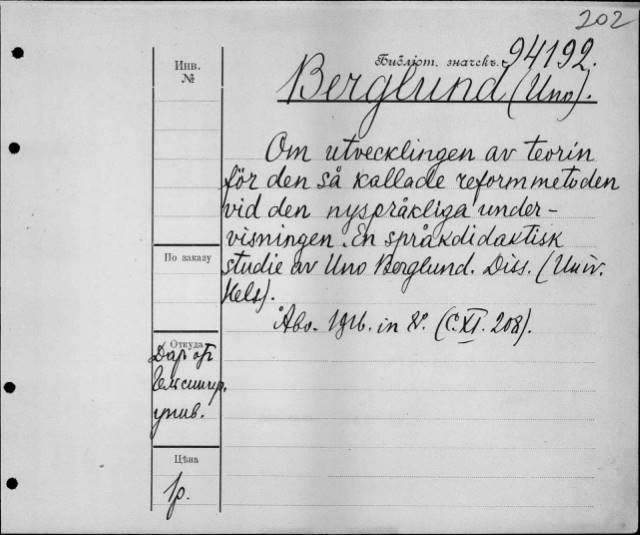 202
Библіот. значекъ. 94192.
Инв.
№
Berglund (Uno).
Om utvecklingen av teorin
för den så kallade reformmetoden
vid den nyspråkliga under-
visningen. En språkdidaktisk
studie av Uno Berglund. Diss. (Univ.
Hels).
Åbo. 1916. in 8°. (C. XI. 208).
По заказу
Откуда
Даръ отъ
Гельсингф.
унив.
Цѣна
1р.